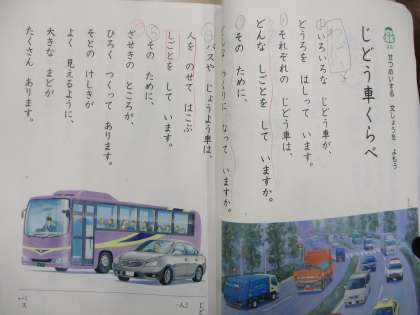 せつめいする 文しょうを よもう
じどう車くらべ
いろいろな じどう車が、
どうろを はしって います。
それぞれの じどう車は、
どんな しごとを して いますか。
その ために、
つくりに なって いますか。
バスや じょうよう車は、
人を のせて はこぶ
しごとを して います。
その ために、
ざせきの ところが、
ひろく つくって あります。
そとの けしきが
よく 見えるように、
大きな まどが
たくさん あります。